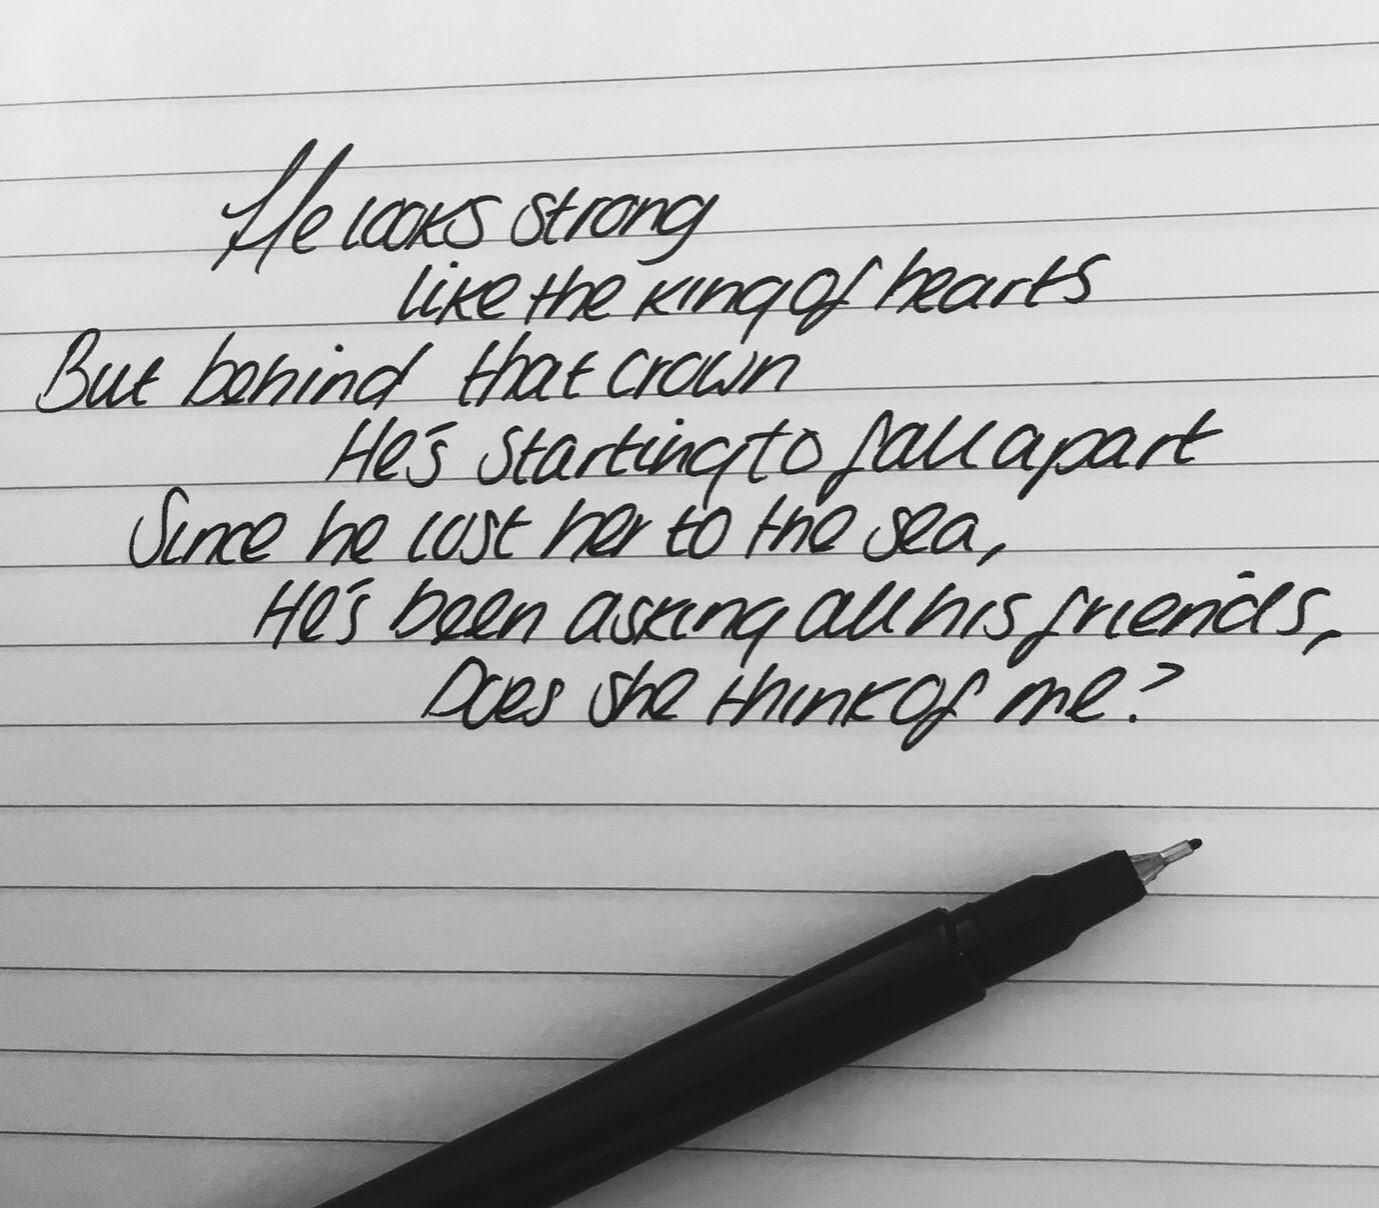 He looks strong
like the king of hearts
But behind that crown
He's starting to fall apart
Since he lost her to the sea,
He's been asking all his friends,
Does she think of me?